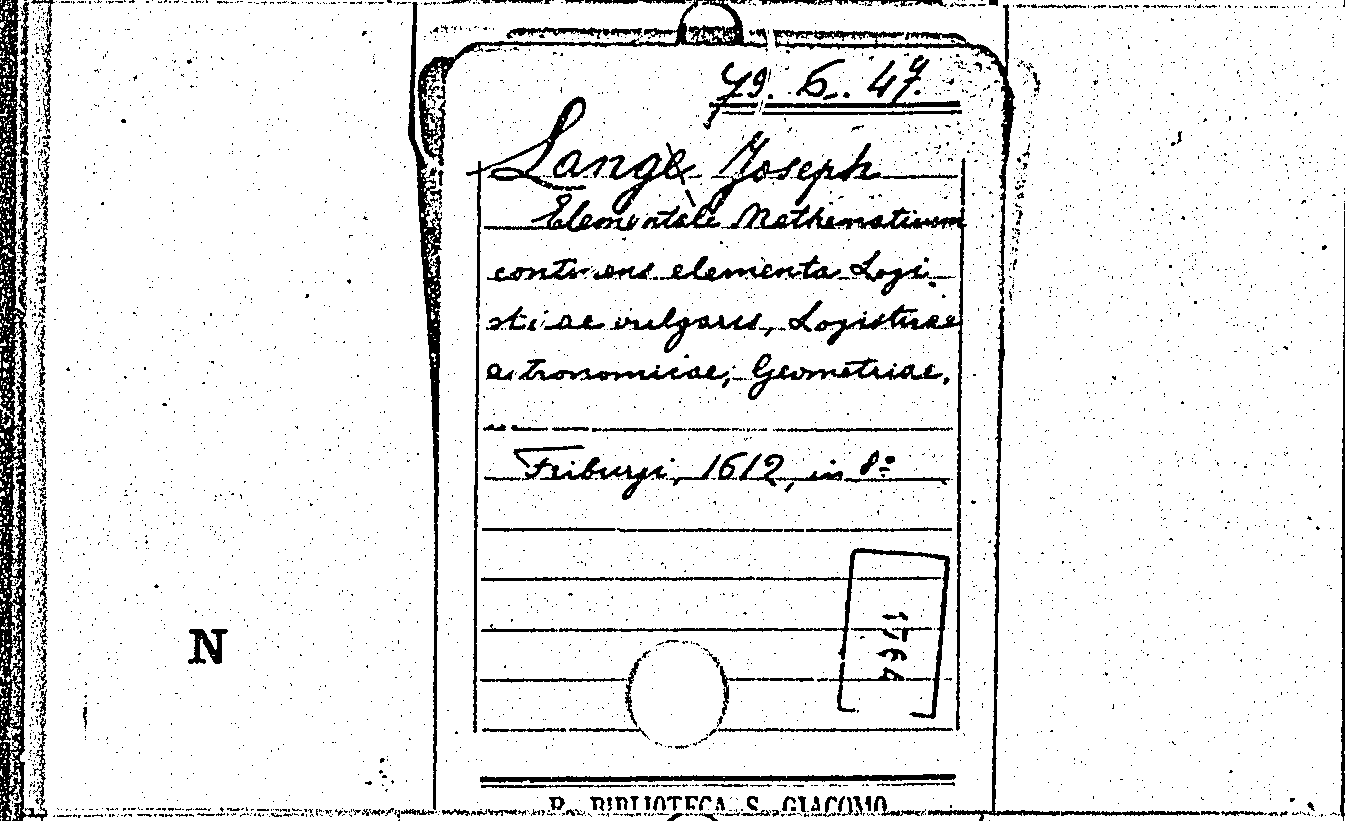 79. 6. 47.
Lange Joseph
Elementale Mathematicum
continens elementa Logi-
sticae vulgaris, Logisticae
astronomicae, Geometriae.
Friburgi, 1612, in 8º
1764
N
R. BIBLIOTECA S. GIACOMO